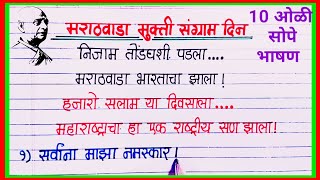 मराठवाडा मुक्ती संग्राम दिन
10 ओळी
सोपे
भाषण
निजाम तोंडघशी पडला....
मराठवाडा भारताचा झाला!
हजारो सलाम या दिवसाला....
महाराष्ट्राचा हा एक राष्ट्रीय सण झाला!
१) सर्वांना माझा नमस्कार!